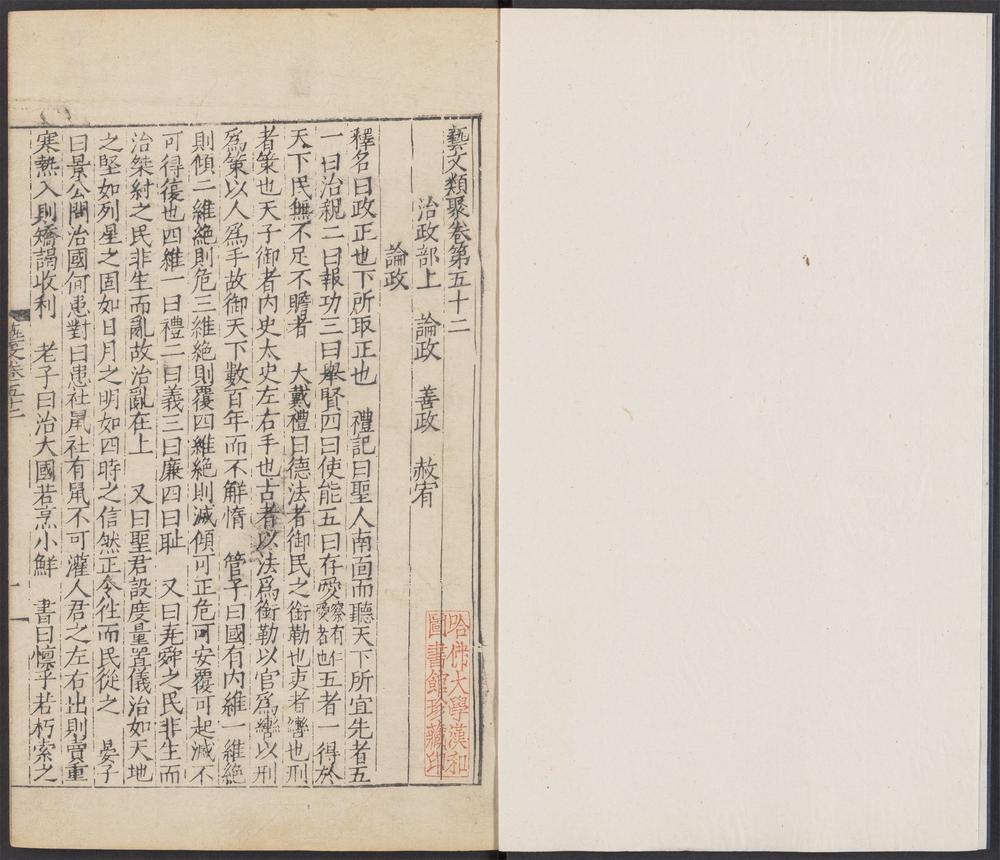 藝文類聚卷第五十二
治政部上　論政　善政　赦宥
論政
釋名曰政正也下所取正也　禮記曰聖人南面而聽天下所宜先者五
一曰治親二曰報功三曰舉賢四曰使能五曰存愛察有仁愛者也五者一得於
天下民無不足不贍者　大戴禮曰德法者御民之銜勒也吏者轡也刑
者策也天子御者內史太史左右手也古者以法爲銜勒以官爲轡以刑
爲策以人爲手故御天下數百年而不解惰　管子曰國有內維一維絕
則傾二維絕則危三維絕則覆四維絕則滅傾可正危可安覆可起滅不
可得復也四維一曰禮二曰義三曰廉四曰耻　又曰堯舜之民非生而
治桀紂之民非生而亂故治亂在上　又曰聖君設度量置儀治如天地
之堅如列星之固如日月之明如四時之信然正令往而民從之　晏子
曰景公問治國何患對曰患社鼠社有鼠不可灌人君之左右出則賣重
寒熱入則矯謁收利　老子曰治大國若烹小鮮　書曰懍乎若朽索之
藝文卷五十二
一
哈佛大學漢和
圖書館珍藏印